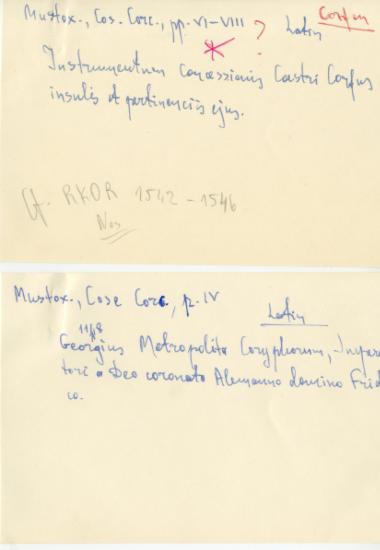 Mustox., Cos. Corc., pp. VI-VIII ? Latin Corfu
Instrumentum Concessionis Castri Corfus
insulis et pertinenciis ejus.
Cf. RKOR 1542-1546
Nos
Mustox., Cose Corc, p. IV
Latin
Georgius Metropolita Coryphorum, Impera
tori a Deo coronato Alemanno domino Frid
co.